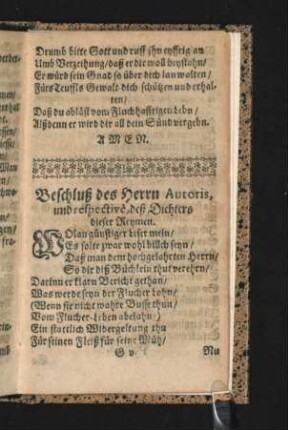 Drumb bitte Gott und ruff jhn eyfferig an
Umb Verzeihung/daß er dir woll beystahn/
Er würd sein Gnad so über dich lan walten/
Fürs Teuffls Gewalt dich schützen und erhal-
ten/
Daß du abläst vom Fluchhafftigen lebn/
Alßdenn er wird dir all dein Sünd vergebn.
A M E N.
Beschluß des Herrn Autoris,
und respectivè, deß Dichters
dieser Reymen.
WOlan günstiger leser mein/
Es solte zwar wohl billich seyn/
Daß man dem hochgelahrten Herrn/
So dir diß Büchlein thut verehrn/
Darinn er klarn Bericht gethan/
Was werde seyn der Flucher Lohn/
(Wenn sie nicht wahre Busse thun/
Vom Flucher-Leben abelahn/)
Ein stattlich Widergeltung thu
Für seinen Fleiß für seine Müh/
G v Nu